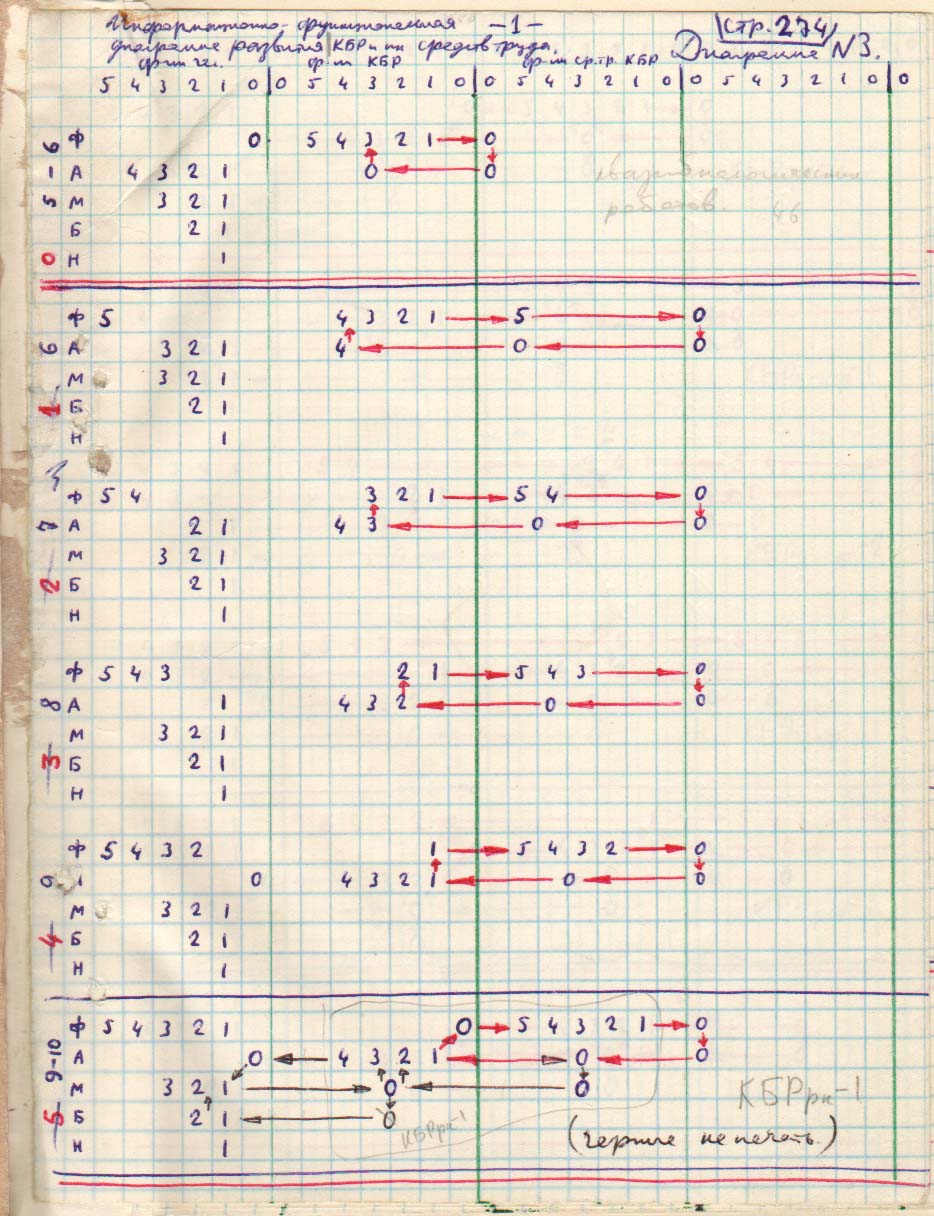 Информационно-функциональная -1- стр. 274
диаграмма развития КБР и их средств труда. Диаграмма N3.
ф-ии че. ф-ии КБР ф-ии ср.тр. КБР
5 4 3 2 1 0 0 5 4 3 2 1 0 0 5 4 3 2 1 0 0 5 4 3 2 1 0 0
Ф 0 5 4 3 2 1 0
А 4 3 2 1 0 0
М 3 2 1
Б 2 1
Н 1
0 5 - 1 6
роботов. 46
Ф 5 4 3 2 1 5 0
А 3 2 1 4 0 0
М 3 2 1
Б 2 1
Н 1
1 6
Ф 5 4 3 2 1 5 4 0
А 2 1 4 3 0 0
М 3 2 1
Б 2 1
Н 1
2 7
Ф 5 4 3 2 1 5 4 3 0
А 1 4 3 2 0 0
М 3 2 1
Б 2 1
Н 1
3 8
Ф 5 4 3 2 1 5 4 3 2 0
0 4 3 2 1 0 0
М 3 2 1
Б 2 1
Н 1
4 9
Ф 5 4 3 2 1 0 5 4 3 2 1 0
А 0 4 3 2 1 0 0
М 3 2 1 0 0
Б 2 1 0
Н 1
5 9-10
КБРрн-1
КБРрн-1
(черные не печать.)